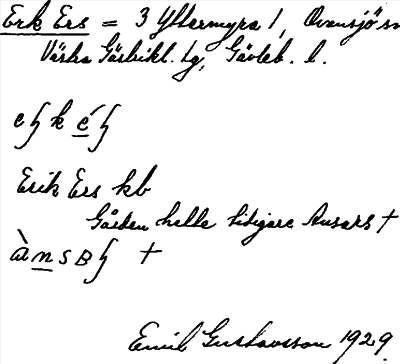 Erk Ers = 3 Yttermyra 1, Ovansjö sn
Västra Gästrikl. tg, Gävleb. l.
Erik Ers kb
Gården hette tidigare Ansars †
Emil Gustavsson 1929